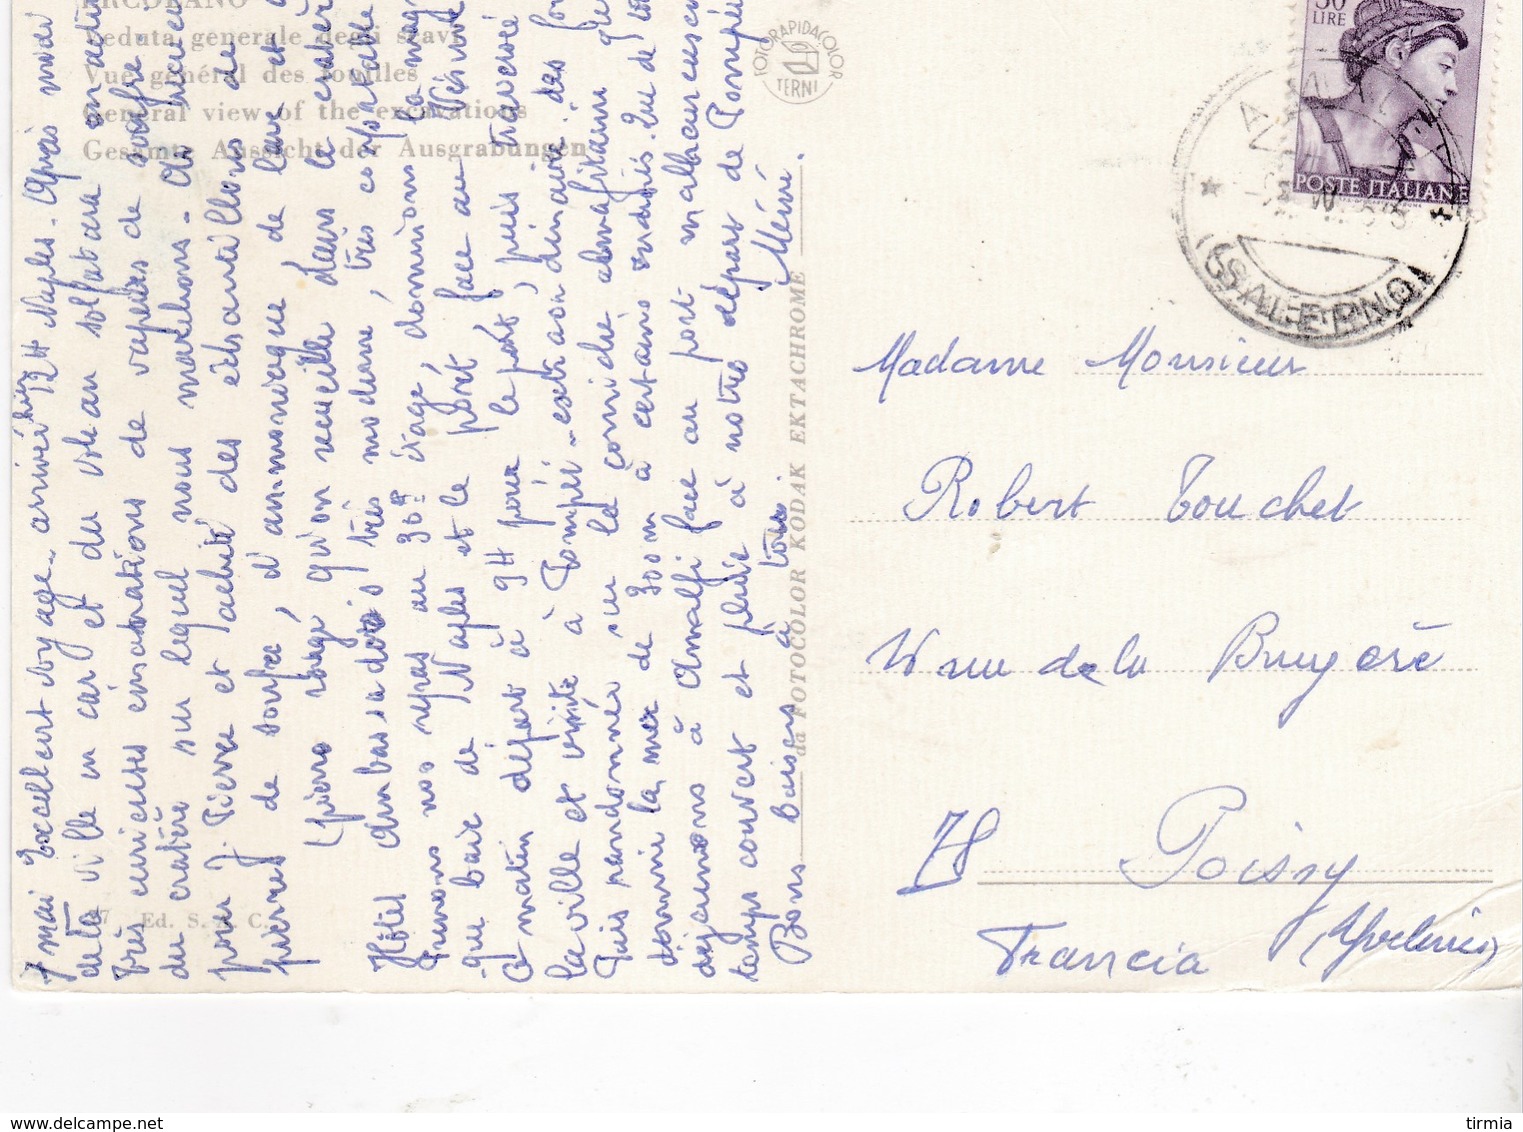 Veduta generale degli scavi
Vue général des fouilles
General view of the excavations
Gesamte Aussicht der Ausgrabungen
FOTORAPIDACOLOR
TERNI
LIRE
POSTE ITALIANE
(SALERNO)
7 mai Excellent voyage. arrivée hier 12H Naples. Après midi
de la ville en car et du volcan solfatare en acti
très curieuses émanations de vapeurs de soufre.
du cratère sur lequel nous marchons.
pour J. Pierre et acheté des échantillons de
pierres de soufre, d'ammoniaque de
rouge qu'on recueille dans le
Hôtel Ambassador's très moderne, très confortable
Prenons nos repas au 30e étage, dominons la mag
que baie de Naples et le port face au Vésuve
Ce matin départ à 9H pour le port, puis traversée
la ville et visite à Pompéi - extraordinaire.
Puis randonnée sur la corniche amalfitaine
domine la mer de 300m à certains endroits.
déjeunons à Amalfi face au port malheureusem
temps couvert et pluie à notre départ de Pompéi
Bons baisers à tous.
Mémé.
da FOTOCOLOR KODAK EKTACHROME
Ed. S. A. C.
Madame Monsieur
Robert Touchet
rue de la Bruyère
78 Poissy
(Yvelines)
Francia
tirmia
www.delcampe.net